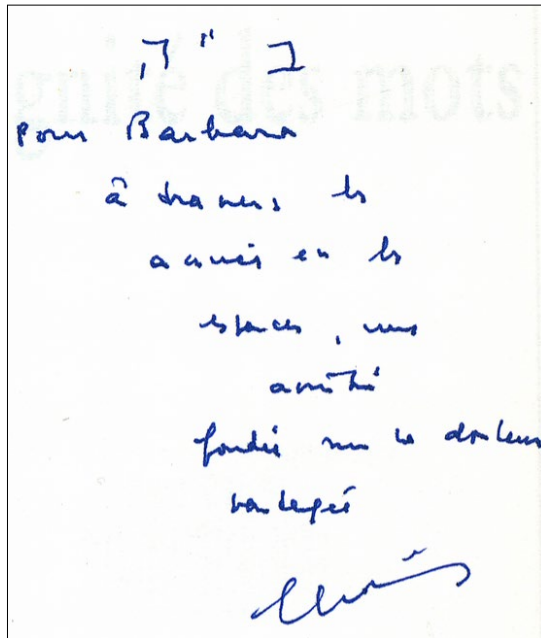 gnité des mots
Pour Barbara
à travers les
années et les
espaces, une
amitié
fondée sur la douleur
partagée